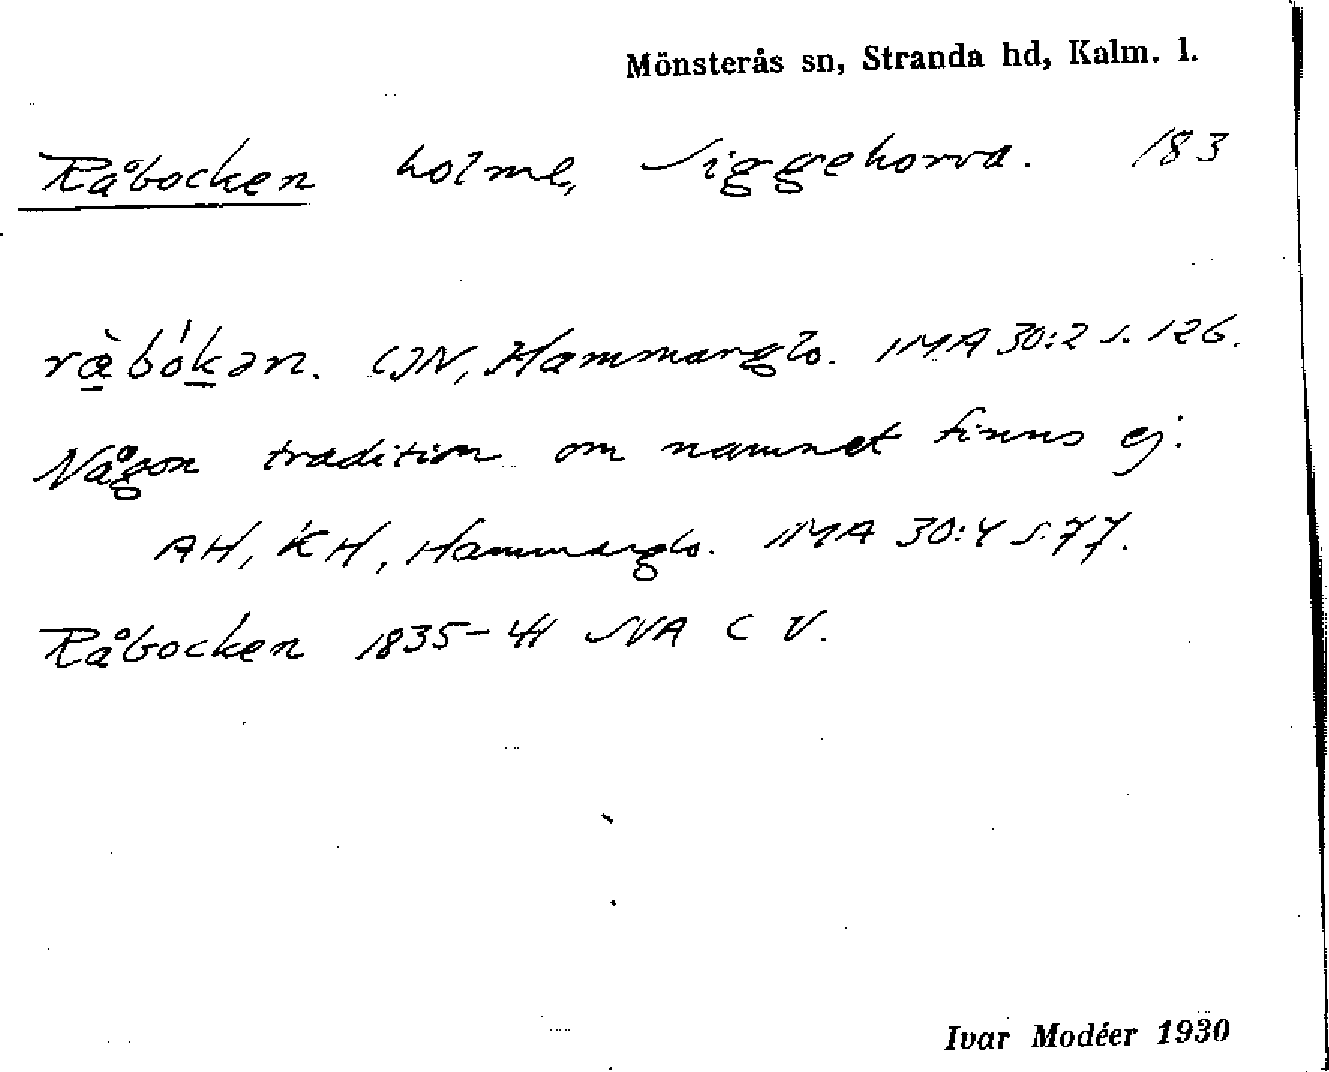 Mönsterås sn, Stranda hd, Kalm. l.
Råbocken holme, Siggehorva. 183
ræ̀bókən. CJN, Hammarglo. IMA 30:2 s. 126.
Någon tradition om namnet finns ej.
AH, KH, Hammarglo. IMA 30:4 s. 77.
Råbocken 1835-44 SVA C V.
Ivar Modéer 1930